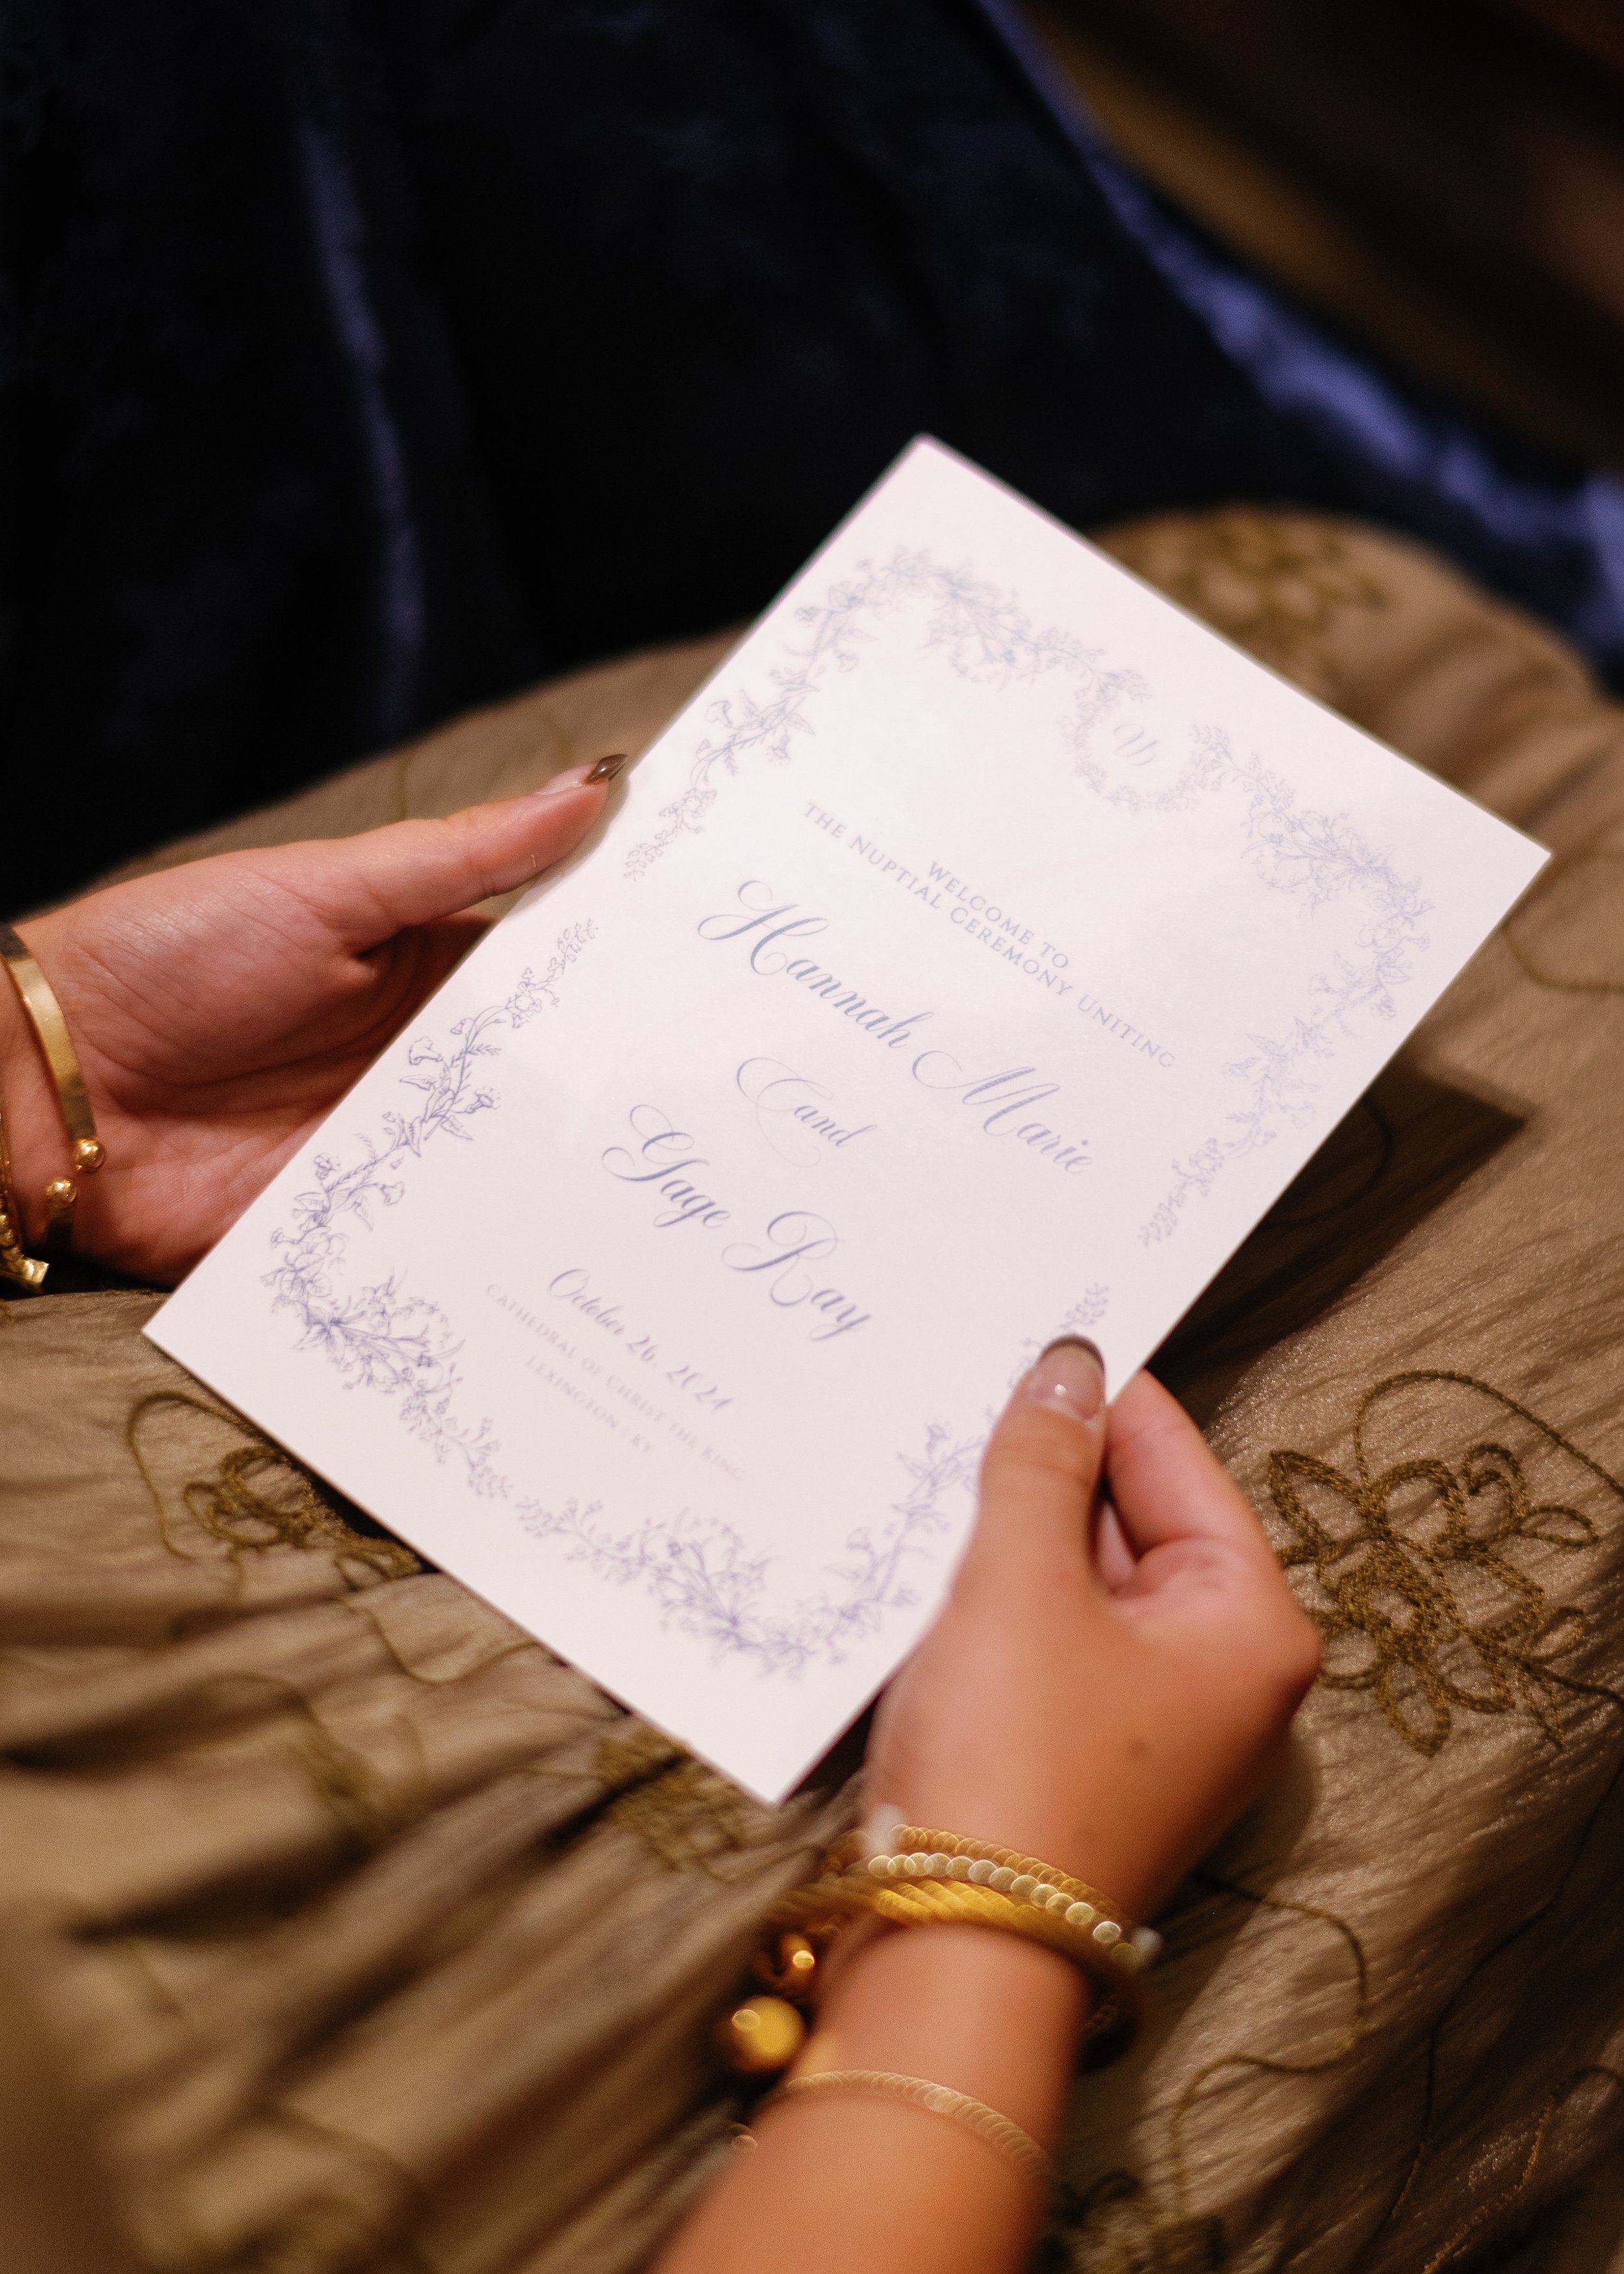 WELCOME TO
THE NUPTIAL CEREMONY UNITING
Hannah Marie
and
Gage Ray
October 26, 2024
CATHEDRAL OF CHRIST THE KING
LEXINGTON | KY